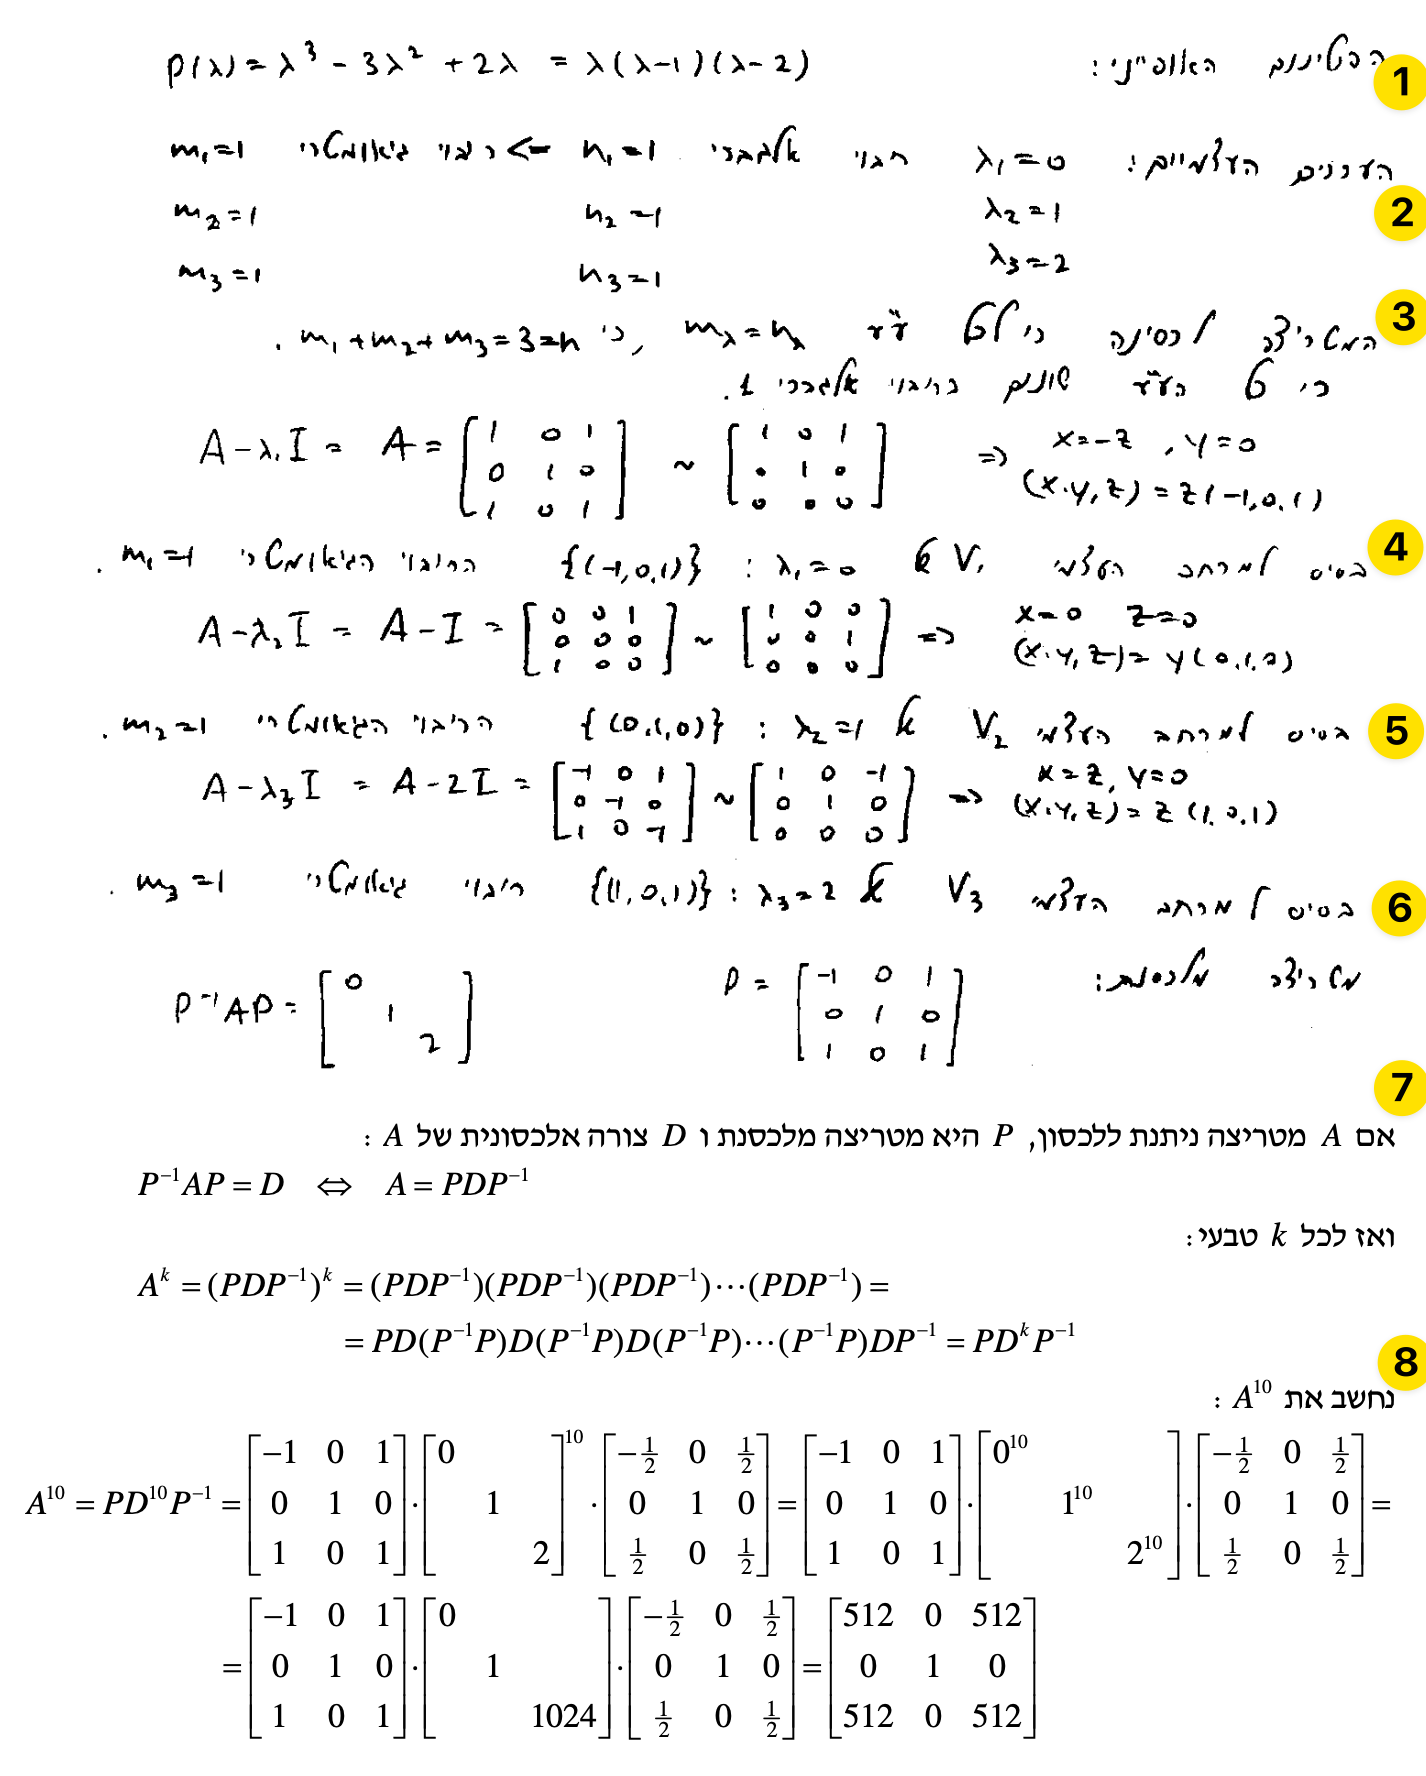 הפולינום האופייני: p(λ) = λ³ - 3λ² + 2λ = λ(λ-1)(λ-2)
1
הערכים העצמיים: λ₁=0 ריבוי אלגברי n₁=1 <= ריבוי גיאומטרי m₁=1
2
λ₂=1 n₂=1 m₂=1
λ₃=2 n₃=1 m₃=1
3
המטריצה לכסינה כי לכל ע"ע m_λ=n_λ, כי m₁+m₂+m₃=3=n.
כי כל הע"ע שונים בריבוי אלגברי 1.
A-λ₁I = A = [1 0 1; 0 1 0; 1 0 1] ~ [1 0 1; 0 1 0; 0 0 0] => x=-z, y=0
(x,y,z) = z(-1,0,1)
4
בסיס למרחב העצמי V₁ של λ₁=0: {(-1,0,1)} הריבוי הגיאומטרי m₁=1.
A-λ₂I = A-I = [0 0 1; 0 0 0; 1 0 0] ~ [1 0 0; 0 0 1; 0 0 0] => x=0 z=0
(x,y,z) = y(0,1,0)
5
בסיס למרחב העצמי V₂ של λ₂=1: {(0,1,0)} הריבוי הגיאומטרי m₂=1.
A-λ₃I = A-2I = [-1 0 1; 0 -1 0; 1 0 -1] ~ [1 0 -1; 0 1 0; 0 0 0] => x=z, y=0
(x,y,z) = z(1,0,1)
6
בסיס למרחב העצמי V₃ של λ₃=2: {(1,0,1)} ריבוי גיאומטרי m₃=1.
מטריצה מלכסנת: P = [-1 0 1; 0 1 0; 1 0 1] P⁻¹AP = [0; 1; 2]
7
אם A מטריצה ניתנת ללכסון, P היא מטריצה מלכסנת ו D צורה אלכסונית של A :
P⁻¹AP = D ⇔ A = PDP⁻¹
ואז לכל k טבעי:
Aᵏ = (PDP⁻¹)ᵏ = (PDP⁻¹)(PDP⁻¹)(PDP⁻¹)⋯(PDP⁻¹) =
= PD(P⁻¹P)D(P⁻¹P)D(P⁻¹P)⋯(P⁻¹P)DP⁻¹ = PDᵏP⁻¹
8
נחשב את A¹⁰ :
A¹⁰ = PD¹⁰P⁻¹ = [-1 0 1; 0 1 0; 1 0 1]·[0; 1; 2]¹⁰·[-1/2 0 1/2; 0 1 0; 1/2 0 1/2] = [-1 0 1; 0 1 0; 1 0 1]·[0¹⁰; 1¹⁰; 2¹⁰]·[-1/2 0 1/2; 0 1 0; 1/2 0 1/2] =
= [-1 0 1; 0 1 0; 1 0 1]·[0; 1; 1024]·[-1/2 0 1/2; 0 1 0; 1/2 0 1/2] = [512 0 512; 0 1 0; 512 0 512]